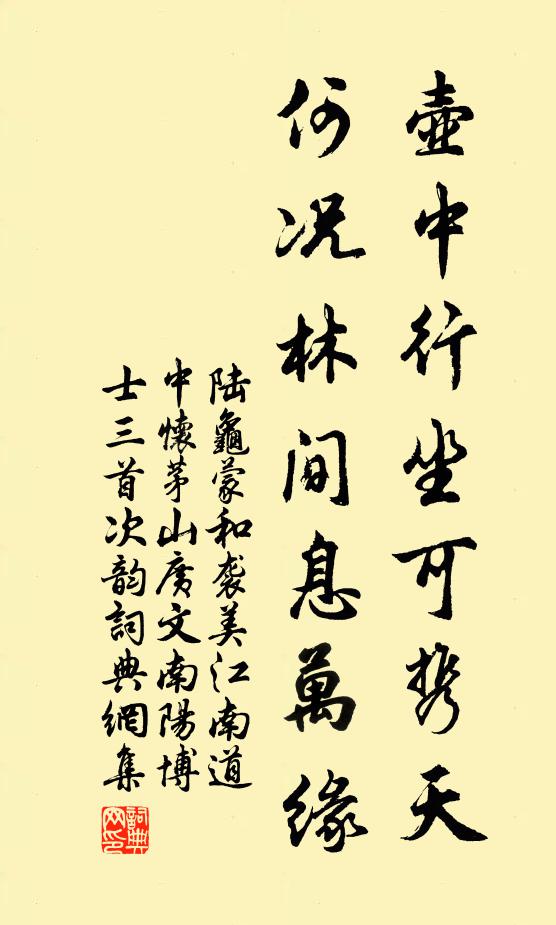 壺中行坐可携天
何况林間息萬緣
陆龜蒙和袭美江南道
中懷茅山廣文南陽博
士三首次韵詞典網集
詞典
网印